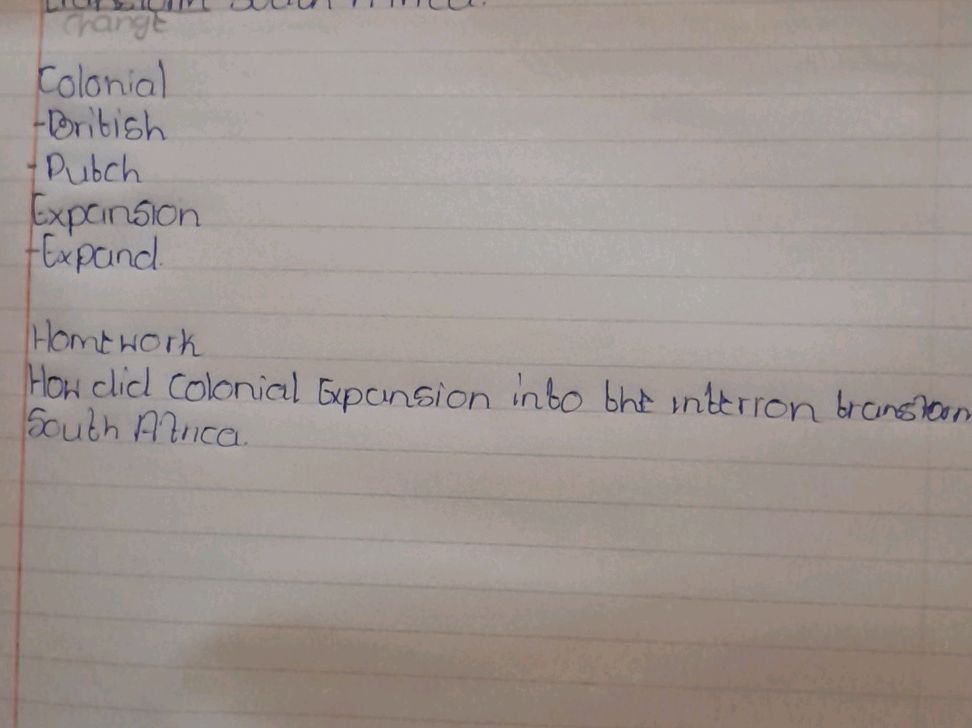 South Africa.
Change
Colonial
-British
- Dutch
Expansion
-Expand.
Homework
How did Colonial Expansion into the interron transform
South Africa.